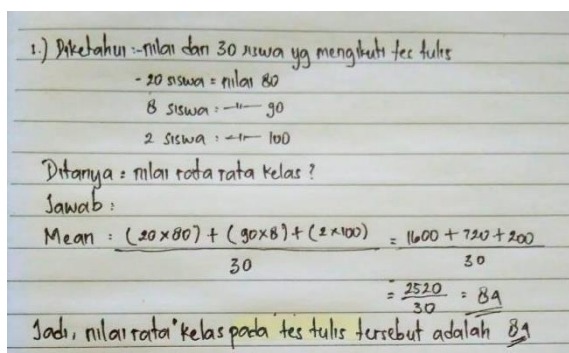 1.) Diketahui :- nilai dari 30 siswa yg mengikuti tes tulis
- 20 siswa = nilai 80
8 siswa : —"— 90
2 siswa : —"— 100
Ditanya : nilai rata rata kelas ?
Jawab :
Mean : (20 x 80) + (90 x 8) + (2 x 100) / 30 = 1600 + 720 + 200 / 30
= 2520 / 30 = 84
Jadi, nilai rata" kelas pada tes tulis tersebut adalah 84